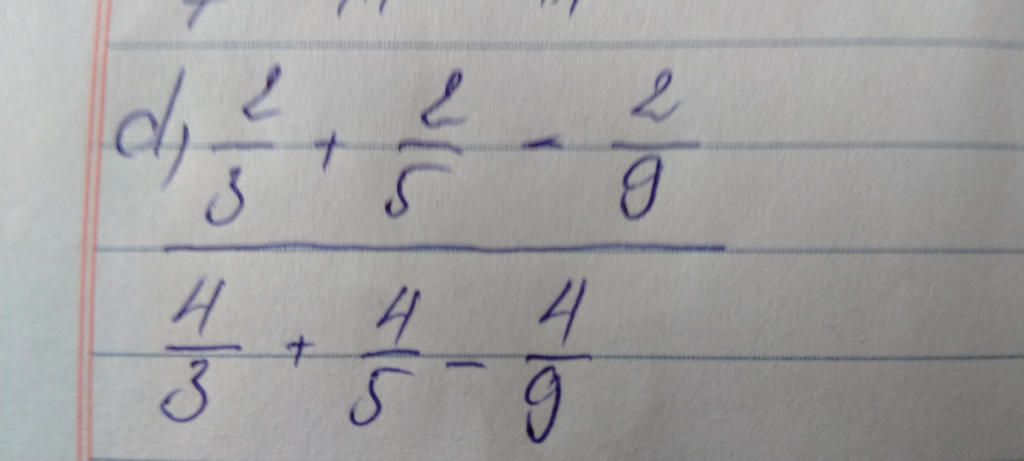 d, 2/3 + 2/5 - 2/9
4/3 + 4/5 - 4/9